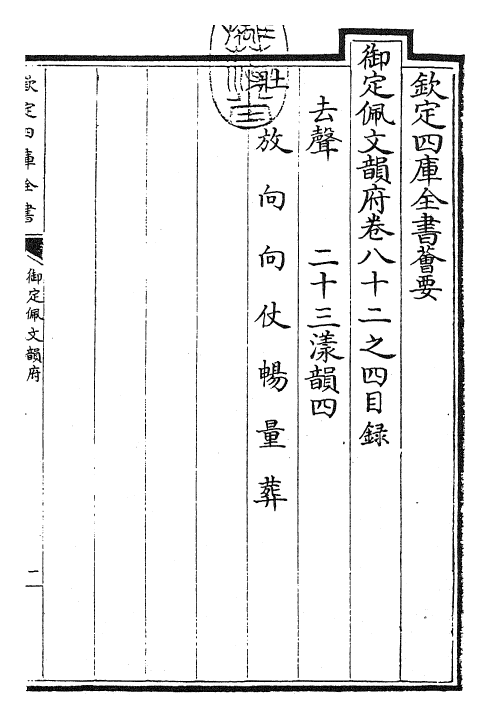 欽定四庫全書薈要
御定佩文韻府卷八十二之四目録
去聲　二十三漾韻四
壯 放 向 向 仗 暢 量 葬
欽定四庫全書
御定佩文韻府
一